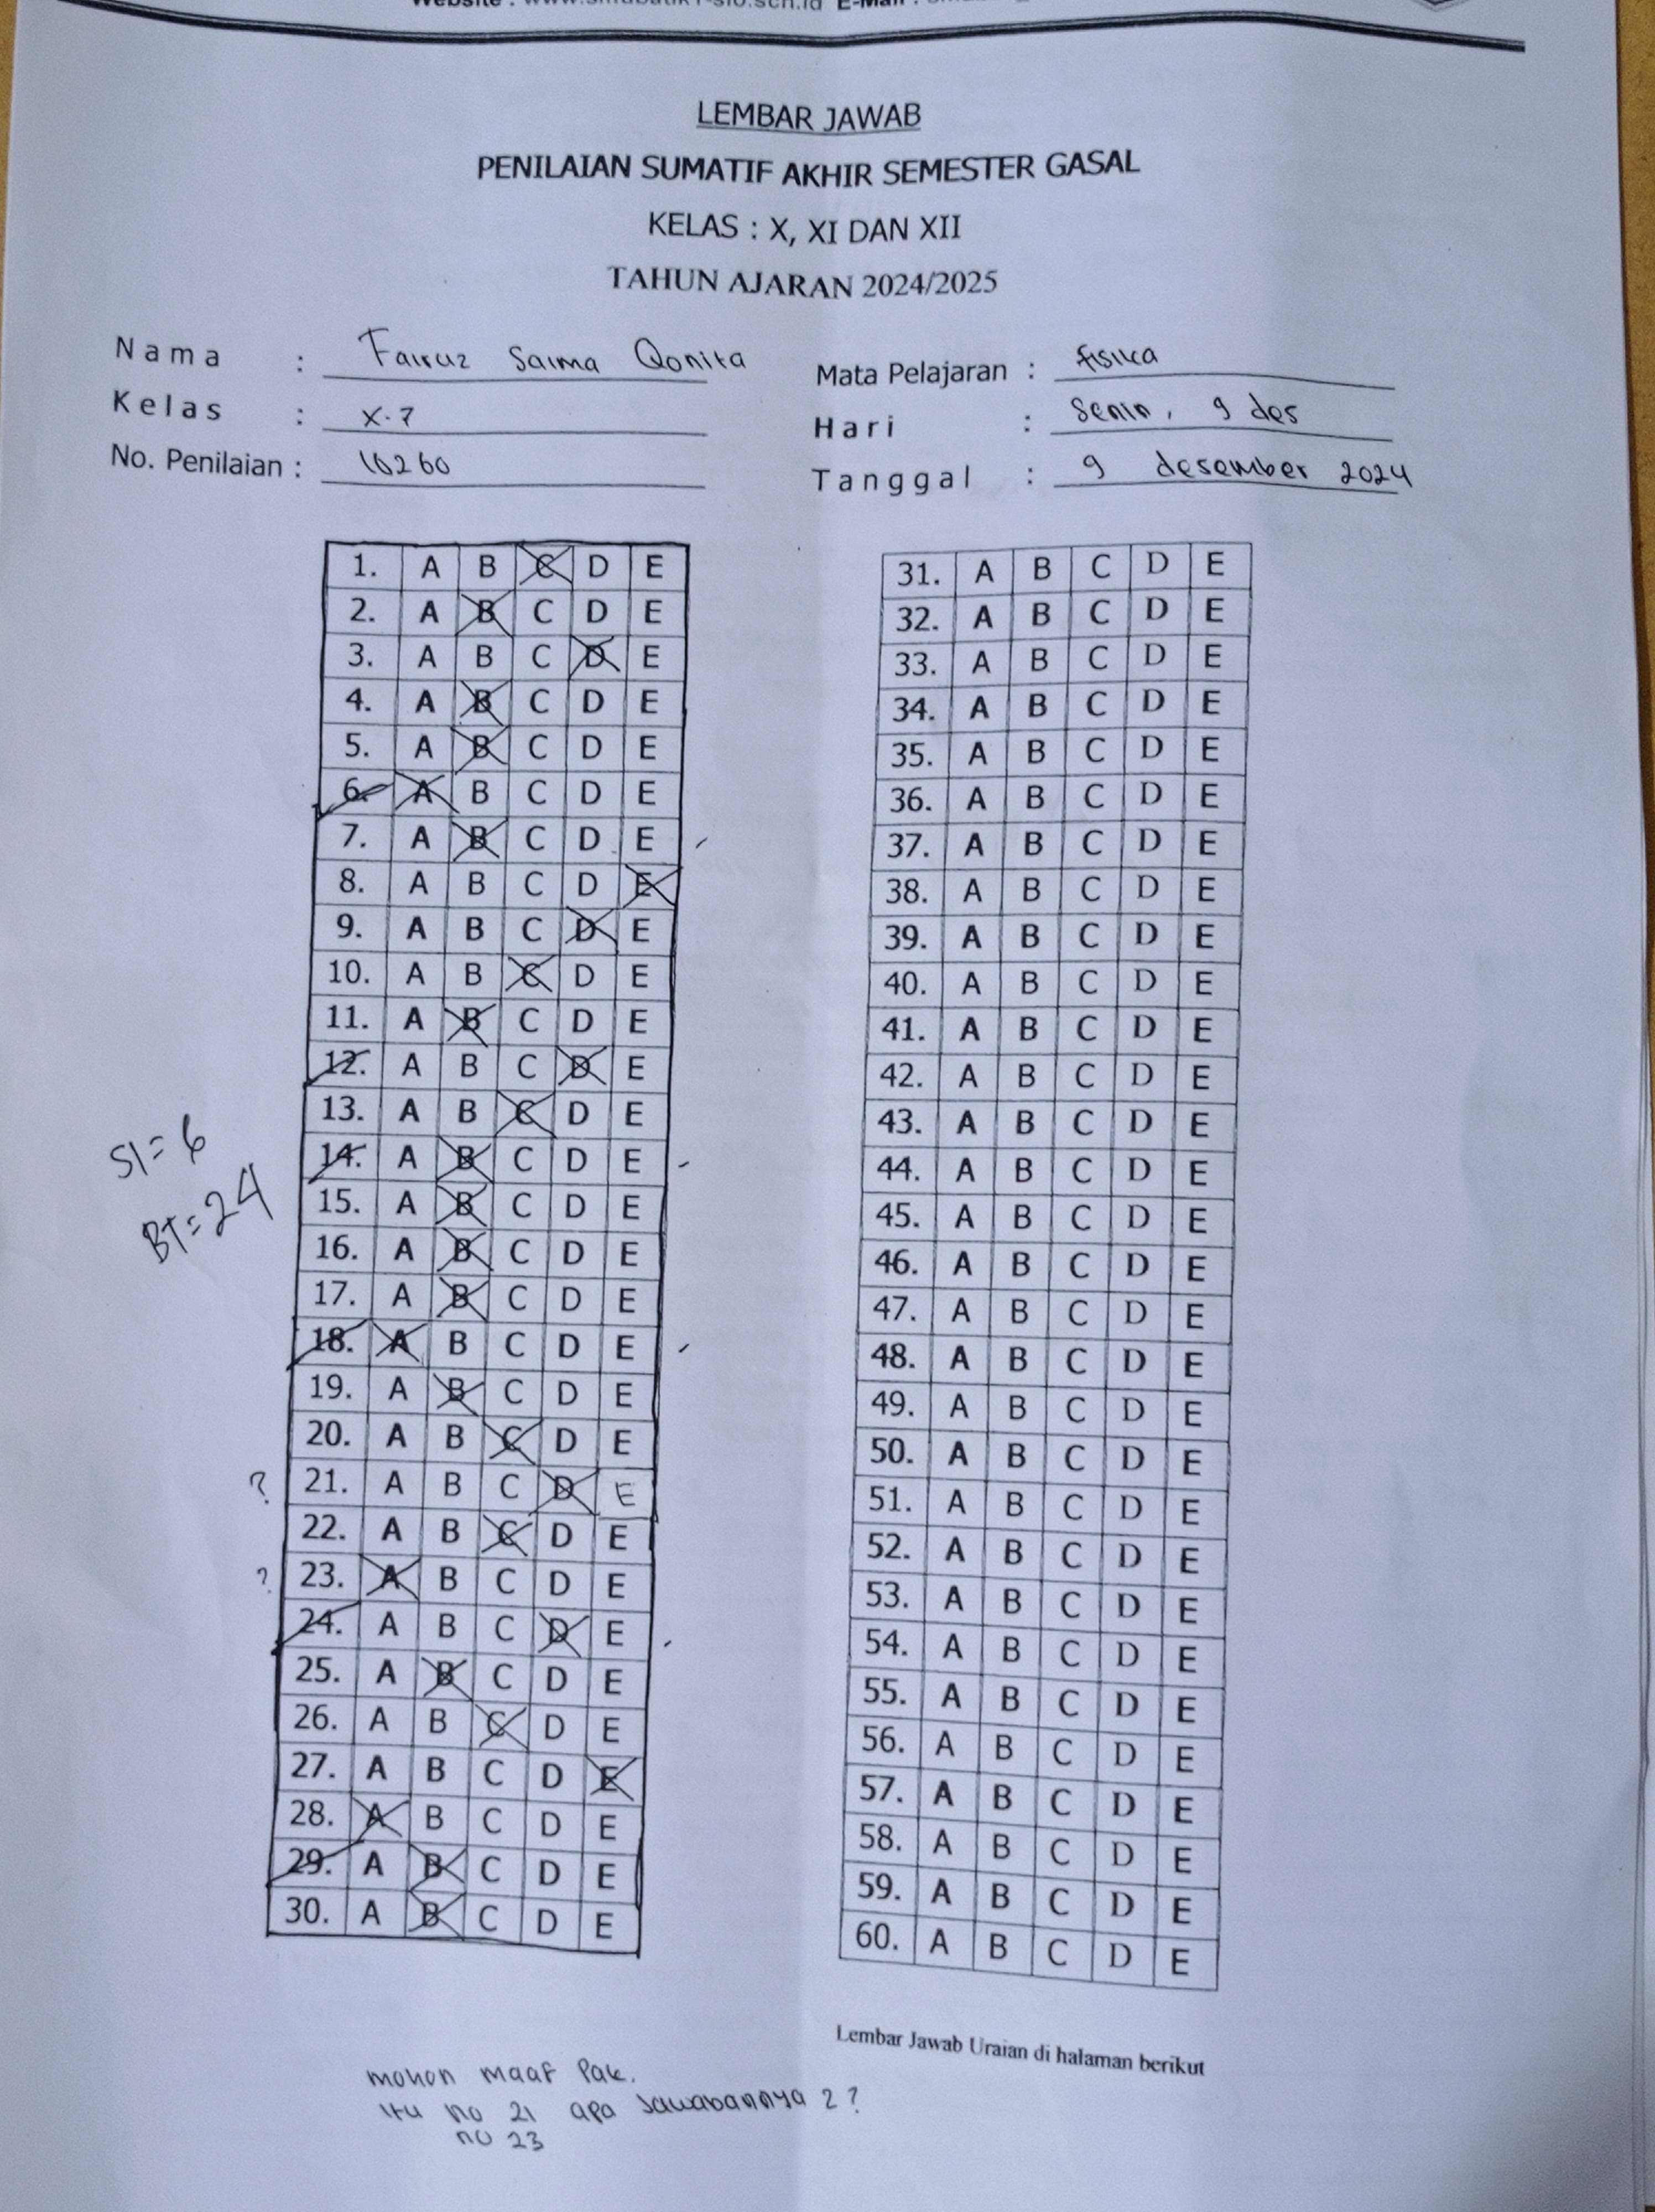 LEMBAR JAWAB
PENILAIAN SUMATIF AKHIR SEMESTER GASAL
KELAS : X, XI DAN XII
TAHUN AJARAN 2024/2025
Nama : Fairuz Salma Qonita
Kelas : X.7
No. Penilaian : 10260
Mata Pelajaran : fisika
Hari : Senin, 9 des
Tanggal : 9 desember 2024
1. A B C D E
2. A B C D E
3. A B C D E
4. A B C D E
5. A B C D E
6. A B C D E
7. A B C D E
8. A B C D E
9. A B C D E
10. A B C D E
11. A B C D E
12. A B C D E
13. A B C D E
14. A B C D E
15. A B C D E
16. A B C D E
17. A B C D E
18. A B C D E
19. A B C D E
20. A B C D E
? 21. A B C D E
22. A B C D E
? 23. A B C D E
24. A B C D E
25. A B C D E
26. A B C D E
27. A B C D E
28. A B C D E
29. A B C D E
30. A B C D E
Sl = 6
BT = 24
31. A B C D E
32. A B C D E
33. A B C D E
34. A B C D E
35. A B C D E
36. A B C D E
37. A B C D E
38. A B C D E
39. A B C D E
40. A B C D E
41. A B C D E
42. A B C D E
43. A B C D E
44. A B C D E
45. A B C D E
46. A B C D E
47. A B C D E
48. A B C D E
49. A B C D E
50. A B C D E
51. A B C D E
52. A B C D E
53. A B C D E
54. A B C D E
55. A B C D E
56. A B C D E
57. A B C D E
58. A B C D E
59. A B C D E
60. A B C D E
Lembar Jawab Uraian di halaman berikut
mohon maaf Pak.
itu no 21 apa Jawabannya 2 ?
no 23